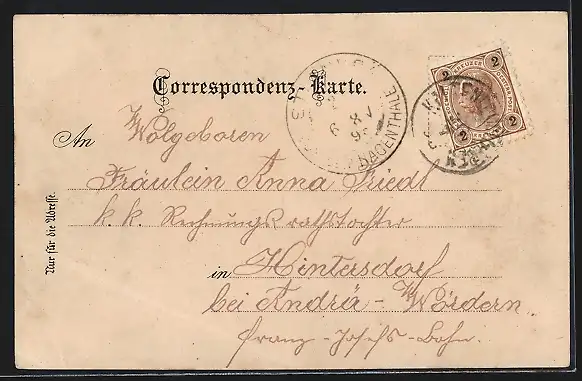 Correspondenz-Karte.
An Wolgeboren
Fräulein Anna Friedl
k. k. Rechnungsrathstochter
in Hintersdorf
bei Andrä-Wördern
Franz-Josefs-Bahn.
Nur für die Adresse.
HAGENTHALE
6 XI
2 KREUZER 2
2 2